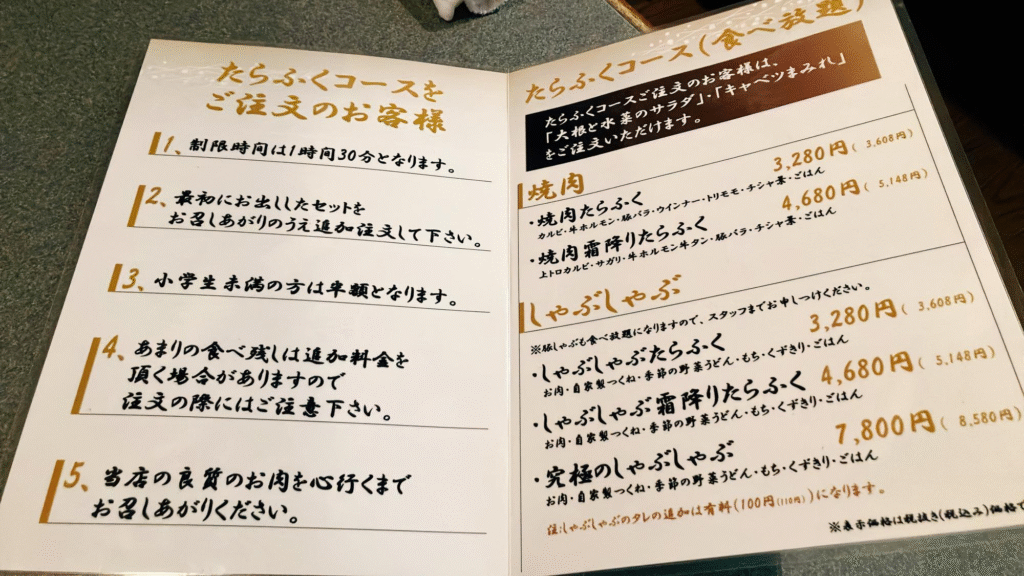 たらふくコースを
ご注文のお客様
1、制限時間は1時間30分となります。
2、最初にお出ししたセットを
お召しあがりのうえ追加注文して下さい。
3、小学生未満の方は半額となります。
4、あまりの食べ残しは追加料金を
頂く場合がありますので
注文の際にはご注意下さい。
5、当店の良質のお肉を心行くまで
お召しあがりください。
たらふくコース(食べ放題)
たらふくコースご注文のお客様は、
「大根と水菜のサラダ」・「キャベツまみれ」
をご注文いただけます。
焼肉
・焼肉たらふく 3,280円(3,608円)
カルビ・牛ホルモン・豚バラ・ウインナー・トリモモ・チシャ葉・ごはん
・焼肉霜降りたらふく 4,680円(5,148円)
上トロカルビ・サガリ・牛ホルモン牛タン・豚バラ・チシャ葉・ごはん
しゃぶしゃぶ
※豚しゃぶも食べ放題になりますので、スタッフまでお申しつけください。
・しゃぶしゃぶたらふく 3,280円(3,608円)
お肉・自家製つくね・季節の野菜うどん・もち・くずきり・ごはん
・しゃぶしゃぶ霜降りたらふく 4,680円(5,148円)
お肉・自家製つくね・季節の野菜うどん・もち・くずきり・ごはん
・究極のしゃぶしゃぶ 7,800円(8,580円)
お肉・自家製つくね・季節の野菜うどん・もち・くずきり・ごはん
注:しゃぶしゃぶのタレの追加は有料(100円(110円))になります。
※表示価格は税抜き(税込み)価格で